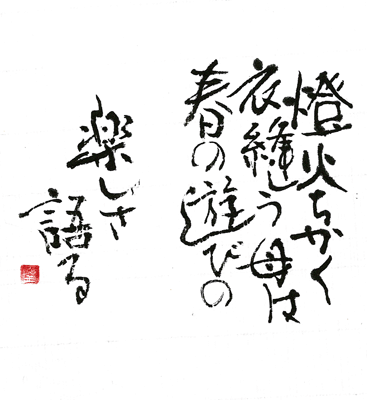 燈火ちかく
衣縫う母は
春の遊びの
楽しさ
語る